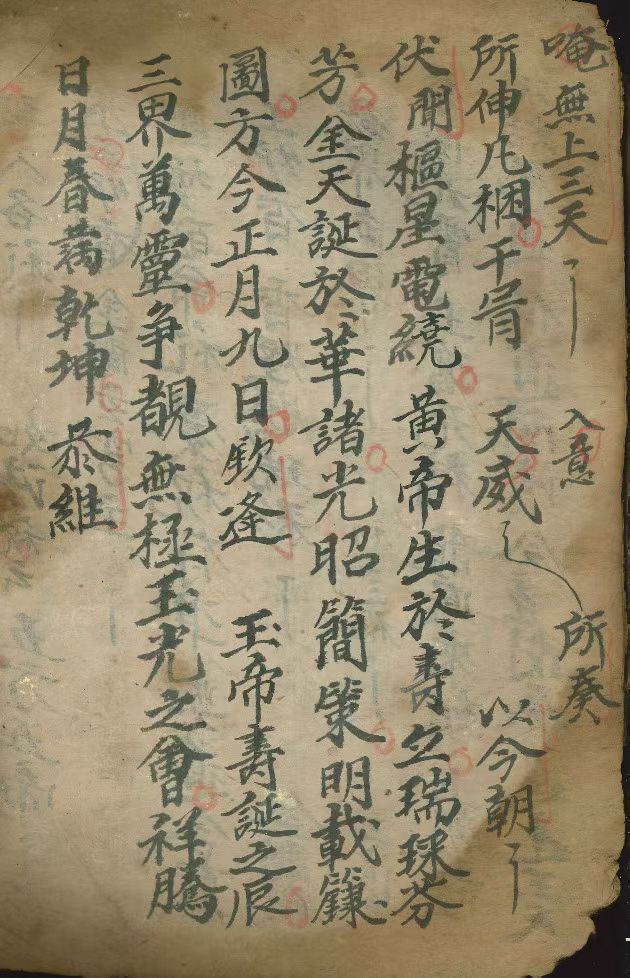 唵無上三天 入意 所奏
所伸凡梱干冐 天威 以今朝
伏聞樞星電繞 黄帝生於壽丘瑞琛芬
芳金天誕於華諸光昭簡策明載籙
圖方今正月九日欽逢 玉帝壽誕之辰
三界萬靈争覩無極玉光之會祥騰
日月春藹乾坤 恭維